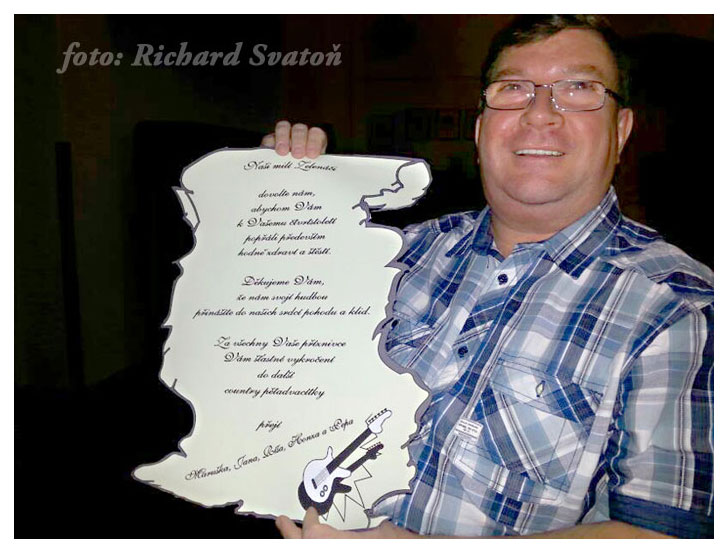 foto: Richard Svatoň
Naši milí Zelenáči
dovolte nám,
abychom Vám
k Vašemu čtvrtstoletí
popřáli především
hodně zdraví a štěstí.
Děkujeme Vám,
že nám svojí hudbou
přinášíte do našich srdcí pohodu a klid.
Za všechny Vaše příznivce
Vám šťastné vykročení
do další
country pětadvacítky
přejí
Maruška, Jana, Růža, Honza a Pepa